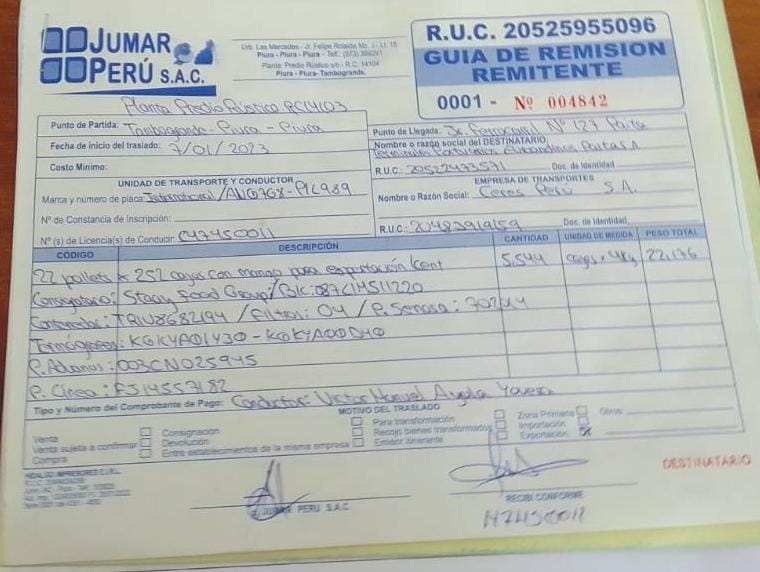 JUMAR PERÚ S.A.C.
Urb. Las Mercedes - Jr. Felipe Rotalde Mz. J - Lt. 15
Piura - Piura - Piura - Telf.: (073)
Planta: Predio Rústico s/n - R.C. 14104
Piura - Piura- Tambogrande.
R.U.C. 20525955096
GUIA DE REMISION
REMITENTE
0001 - Nº 004842
Planta Predio Rústico RC14103
Punto de Partida: Tambogrande - Piura - Piura
Fecha de inicio del traslado: 7/01/2023
Costo Mínimo:
Punto de Llegada: Jr. Ferrocarril Nº 127 Paita
Nombre o razón social del DESTINATARIO:
Terminales Portuarios Euroandinos Paita S.A
R.U.C.: 20522473571 Doc. de Identidad
UNIDAD DE TRANSPORTE Y CONDUCTOR
Marca y número de placa: International/
Nº de Constancia de Inscripción:
Nº (s) de Licencia(s) de Conducir: C47450011
EMPRESA DE TRANSPORTES
Nombre o Razón Social: Ceres Perú S.A.
R.U.C.: 20483919159 Doc. de Identidad
CÓDIGO DESCRIPCIÓN CANTIDAD UNIDAD DE MEDIDA PESO TOTAL
22 pallets x 252 cajas con mango para exportación Kent 5,544 cajas x 4kg 22,176
Consignatario: Group/B/C:
Contenedor: TRIU8682194 / Filtros: 04 / P. Senasa:
Termógrafos:
P. Aduanas: 003CN025945
P. Línea: FJ14557182
Tipo y Número del Comprobante de Pago: Conductor: Victor Manuel Ayala
MOTIVO DEL TRASLADO
Venta
Venta sujeta a confirmar
Compra
Consignación
Devolución
Entre establecimientos de la misma empresa
Para transformación
Recojo bienes transformados
Emisor itinerante
Zona Primaria
Importación
Exportación
Otros
JUMAR PERU S.A.C
RECIBI CONFORME
47450011
DESTINATARIO